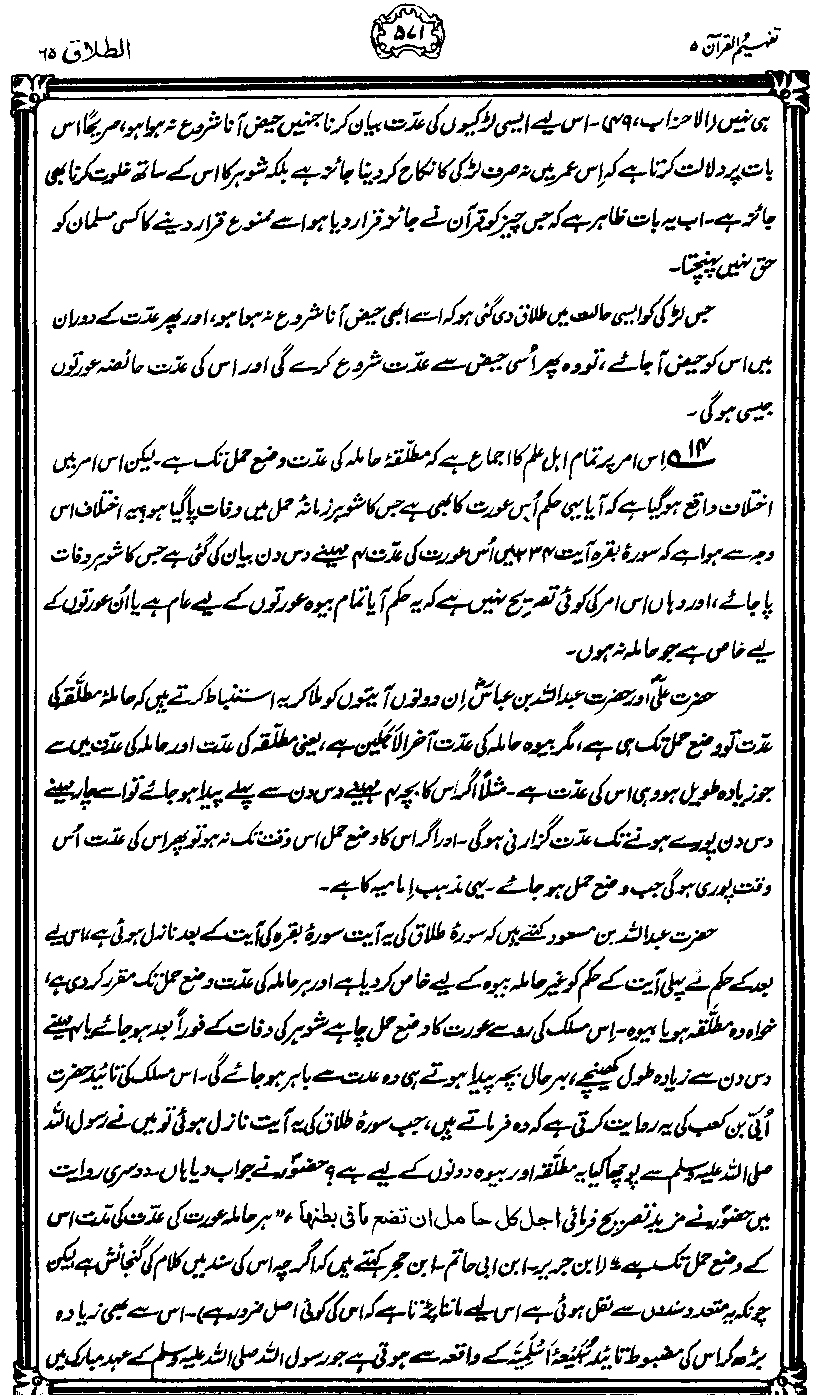 تفہیم القرآن ۵
۵۷۱
الطلاق ۶۵
ہی نہیں (الاحزاب، ۴۹)۔ اس لیے ایسی لڑکیوں کی عدّت بیان کرنا جنہیں حیض آنا شروع نہ ہوا ہو، صریحًا اس
بات پر دلالت کرتا ہے کہ اِس عمر میں نہ صرف لڑکی کا نکاح کر دینا جائز ہے بلکہ شوہر کا اس کے ساتھ خلوت کرنا بھی
جائز ہے۔ اب یہ بات ظاہر ہے کہ جس چیز کو قرآن نے جائز قرار دیا ہو اسے ممنوع قرار دینے کا کسی مسلمان کو
حق نہیں پہنچتا۔
جس لڑکی کو ایسی حالت میں طلاق دی گئی ہو کہ اسے ابھی حیض آنا شروع نہ ہوا ہو، اور پھر عدّت کے دوران
میں اس کو حیض آ جائے، تو وہ پھر اُسی حیض سے عدّت شروع کرے گی اور اس کی عدّت حائضہ عورتوں
جیسی ہوگی۔
۱۴ اِس امر پر تمام اہل علم کا اجماع ہے کہ مطلّقہ حاملہ کی عدّت وضع حمل تک ہے۔ لیکن اس امر میں
اختلاف واقع ہو گیا ہے کہ آیا یہی حکم اُس عورت کا بھی ہے جس کا شوہر زمانۂ حمل میں وفات پا گیا ہو؟ یہ اختلاف اس
وجہ سے ہوا ہے کہ سورۂ بقرہ آیت ۲۳۴ میں اُس عورت کی عدّت ۴ مہینے دس دن بیان کی گئی ہے جس کا شوہر وفات
پا جائے، اور وہاں اس امر کی کوئی تصریح نہیں ہے کہ یہ حکم آیا تمام بیوہ عورتوں کے لیے عام ہے یا اُن عورتوں کے
لیے خاص ہے جو حاملہ نہ ہوں۔
حضرت علیؓ اور حضرت عبداللہ بن عباسؓ اِن دونوں آیتوں کو ملا کر یہ استنباط کرتے ہیں کہ حاملۂ مطلّقہ کی
عدّت تو وضع حمل تک ہی ہے، مگر بیوہ حاملہ کی عدّت آخر الاَجَلَین ہے، یعنی مطلّقہ کی عدّت اور حاملہ کی عدّت میں سے
جو زیادہ طویل ہو وہی اس کی عدّت ہے۔ مثلًا اگر اس کا بچہ ۴ مہینے دس دن سے پہلے پیدا ہو جائے تو اسے چار مہینے
دس دن پورے ہونے تک عدّت گزارنی ہوگی۔ اور اگر اس کا وضع حمل اس وقت تک نہ ہو تو پھر اس کی عدّت اُس
وقت پوری ہوگی جب وضع حمل ہو جائے۔ یہی مذہب اِمامیہ کا ہے۔
حضرت عبداللہ بن مسعود کہتے ہیں کہ سورۂ طلاق کی یہ آیت سورۂ بقرہ کی آیت کے بعد نازل ہوئی ہے، اس لیے
بعد کے حکم نے پہلی آیت کے حکم کو غیر حاملہ بیوہ کے لیے خاص کر دیا ہے اور ہر حاملہ کی عدّت وضع حمل تک مقرر کر دی ہے،
خواہ وہ مطلّقہ ہو یا بیوہ۔ اِس مسلک کی رو سے عورت کا وضع حمل چاہے شوہر کی وفات کے فوراً بعد ہو جائے یا ۴ مہینے
دس دن سے زیادہ طول کھینچے، بہرحال بچہ پیدا ہوتے ہی وہ عدت سے باہر ہو جائے گی۔ اس مسلک کی تائید حضرت
اُبَیّ بن کعب کی یہ روایت کرتی ہے کہ وہ فرماتے ہیں، جب سورۂ طلاق کی یہ آیت نازل ہوئی تو میں نے رسول اللہ
صلی اللہ علیہ وسلم سے پوچھا کیا یہ مطلّقہ اور بیوہ دونوں کے لیے ہے؟ حضورؐ نے جواب دیا ہاں۔ دوسری روایت
میں حضورؐ نے مزید تصریح فرمائی اجل کل حامل ان تضع مافی بطنها، "ہر حاملہ عورت کی عدّت کی مدّت اس
کے وضع حمل تک ہے" (ابن جریر۔ ابن ابی حاتم۔ ابن حجر کہتے ہیں کہ اگرچہ اس کی سند میں کلام کی گنجائش ہے لیکن
چونکہ یہ متعدد سندوں سے نقل ہوئی ہے اس لیے ماننا پڑتا ہے کہ اس کی کوئی اصل ضرور ہے)۔ اس سے بھی زیادہ
بڑھ کر اس کی مضبوط تائید سُبَیْعَۂ اَسْلَمِیَّہ کے واقعہ سے ہوتی ہے جو رسول اللہ صلی اللہ علیہ وسلم کے عہد مبارک میں